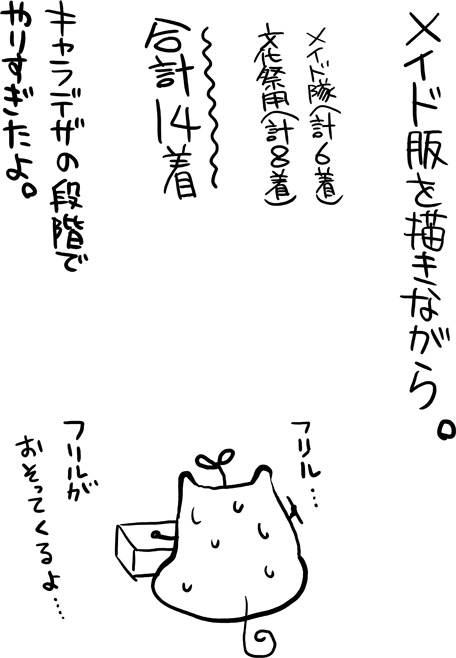 メイド服を描きながら。
メイド隊(計6着)
文化祭用(計8着)
合計14着
キャラデザの段階で
やりすぎたよ。
フリル…
フリルが
おそってくるよ……